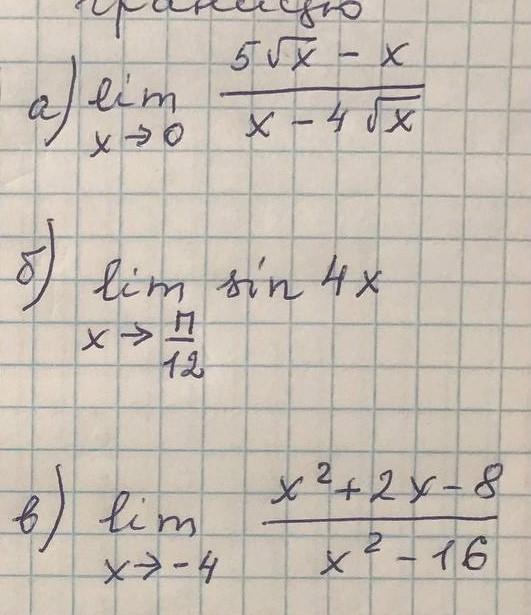 границю
а) lim x→0 (5√x − x)/(x − 4√x)
б) lim x→π/12 sin 4x
в) lim x→−4 (x² + 2x − 8)/(x² − 16)